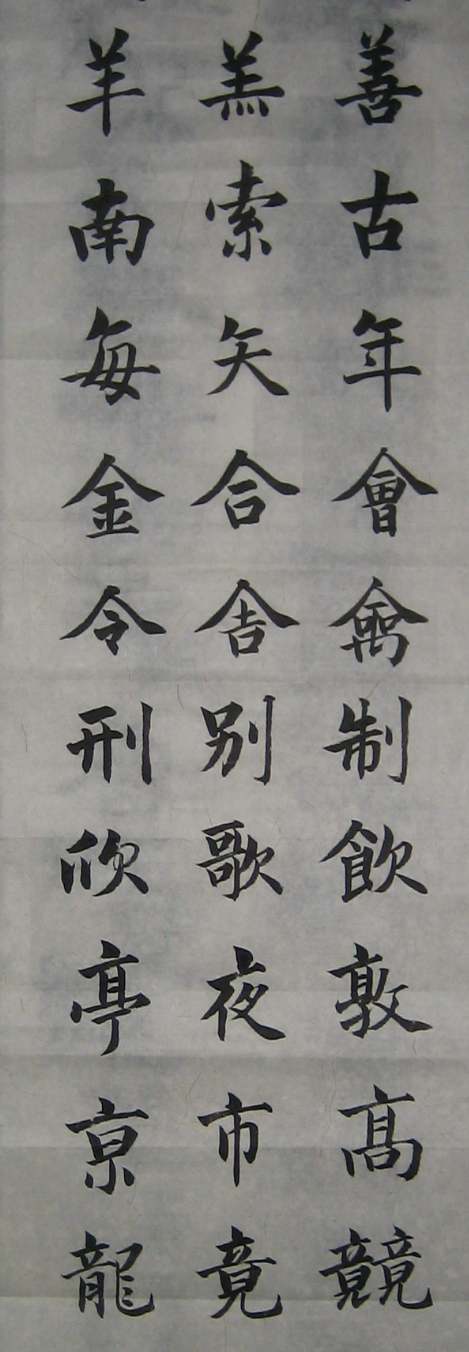 善古年會禽制飲敦髙競
羔索矢合舍别歌夜市竟
羊南每金令刑欣亭亰龍